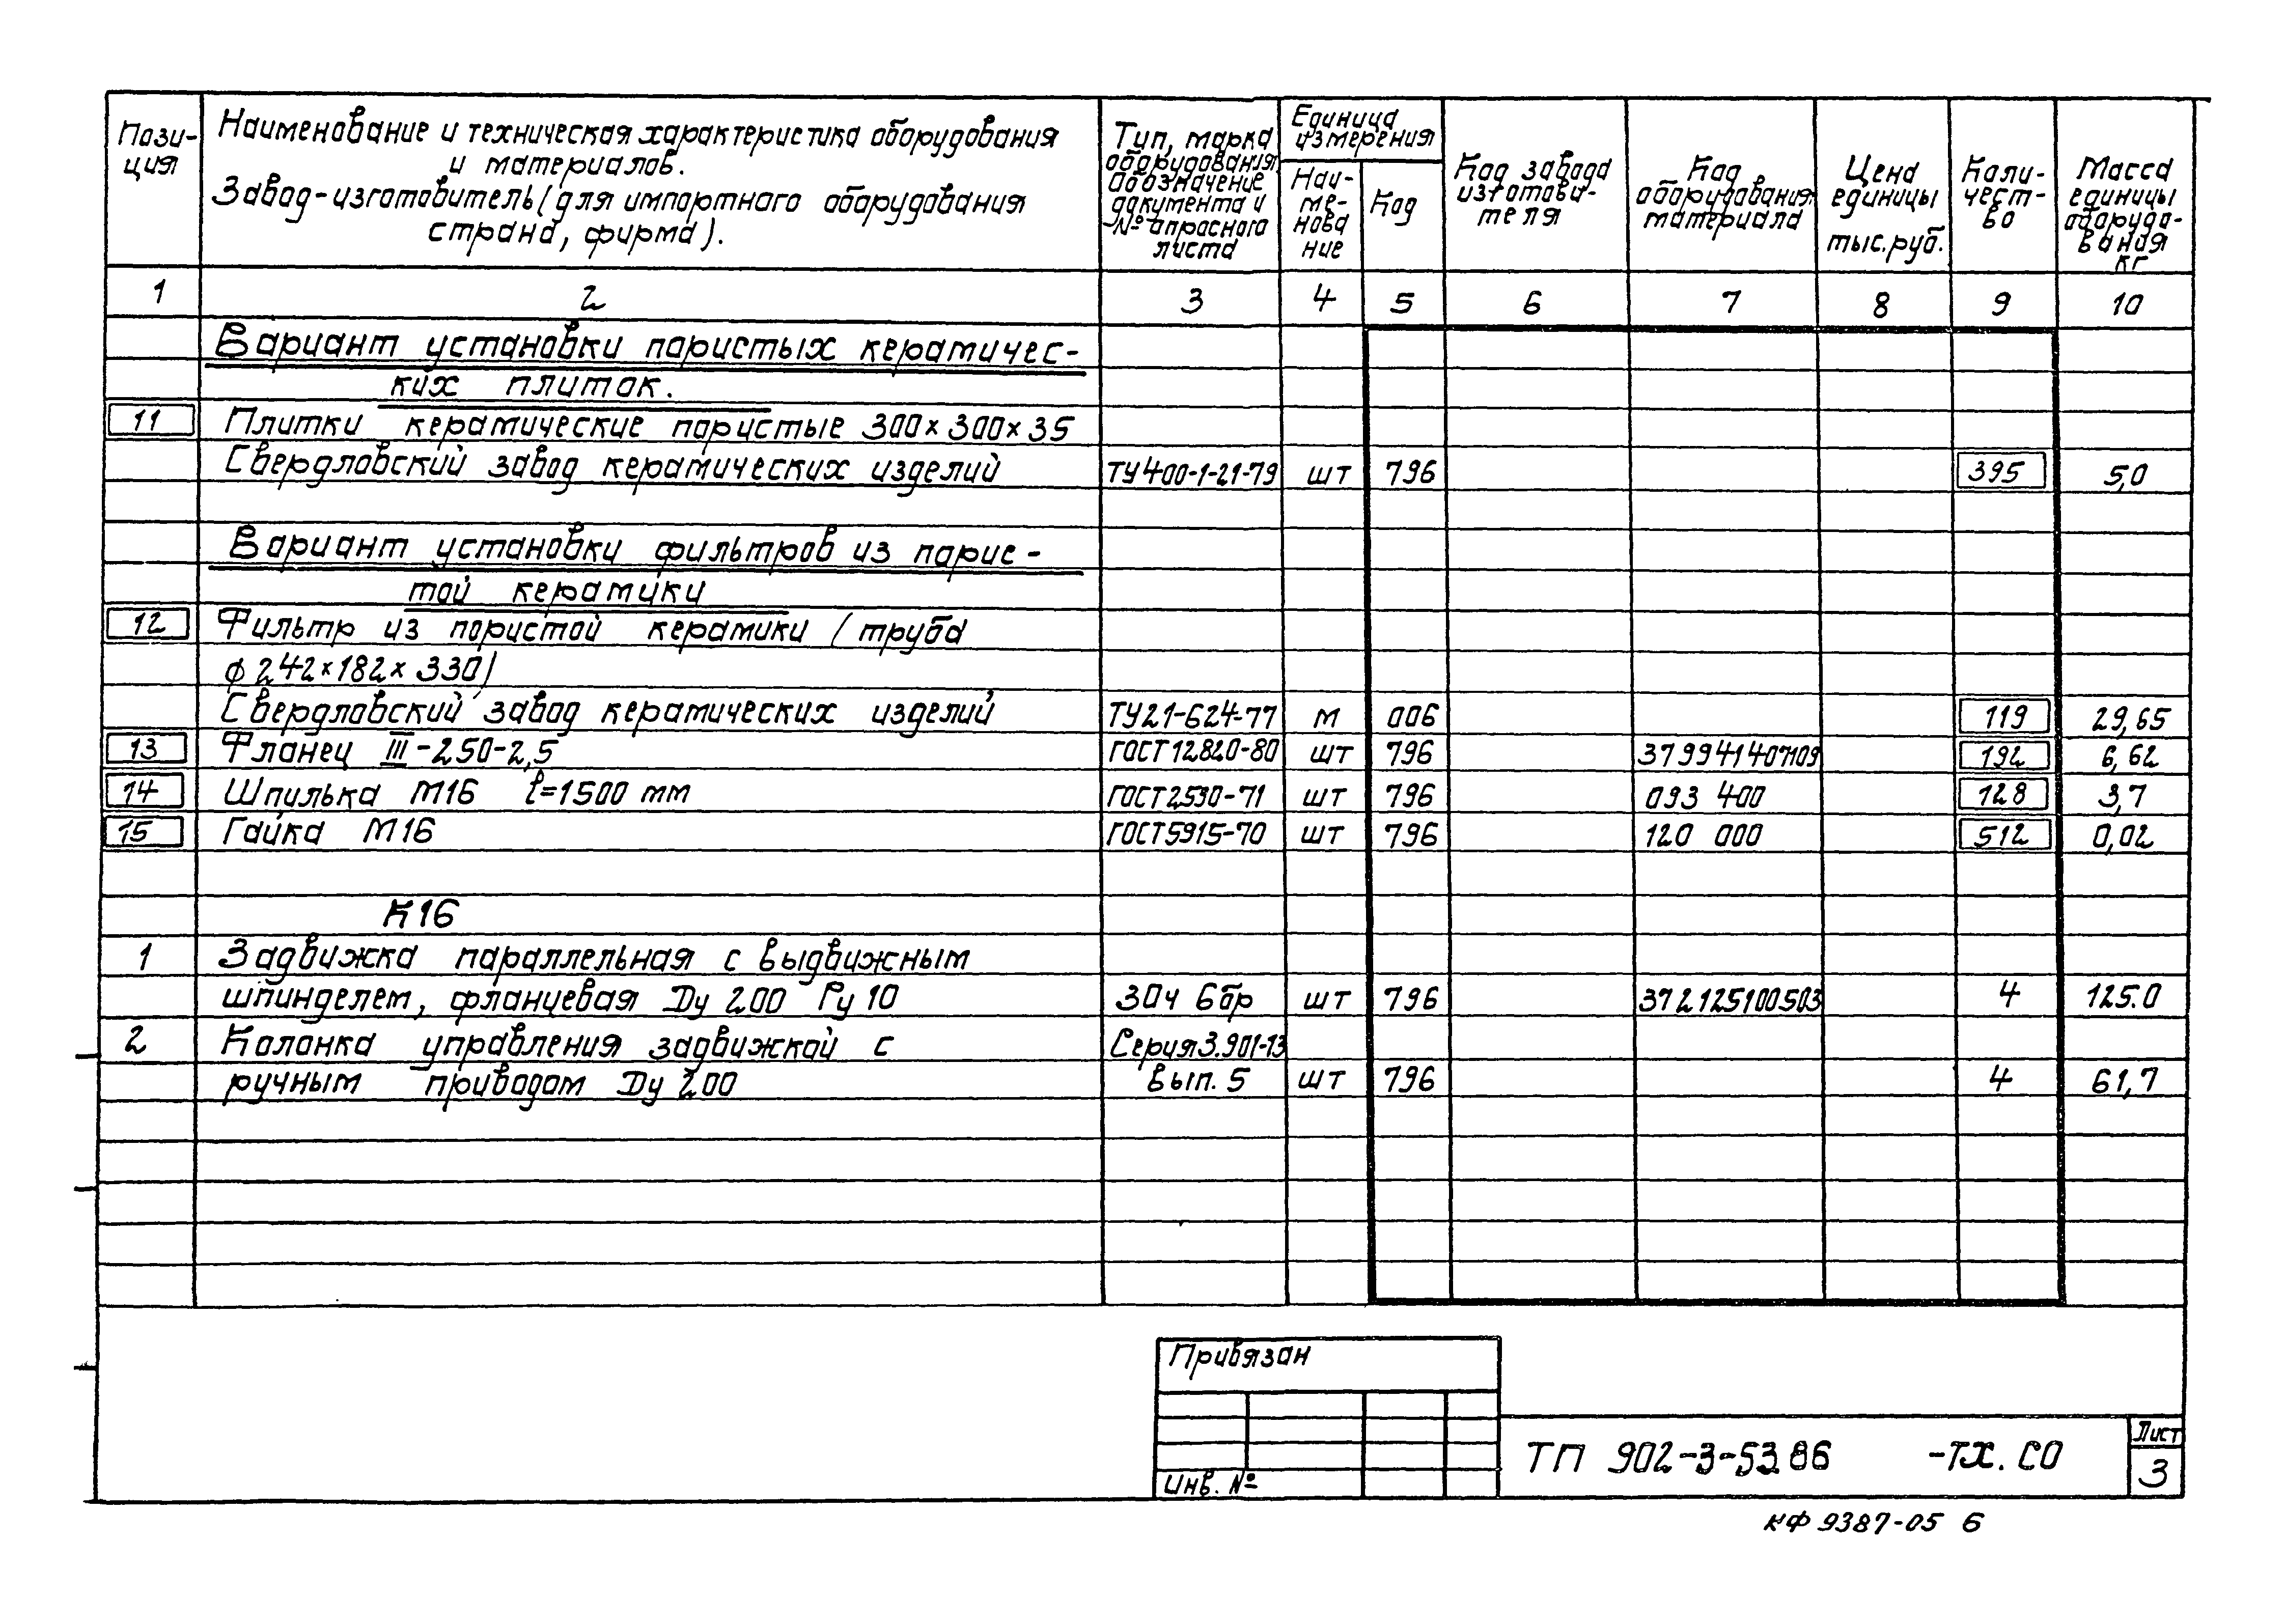 Пози-
ция
Наименование и техническая характеристика оборудования
и материалов.
Завод-изготовитель (для импортного оборудования
страна, фирма).
Тип, марка
оборудования.
Обозначение
документа и
№ опросного
листа
Единица
измерения
Наи-
ме-
нова
ние
Код
Код завода
изготови-
теля
Код
оборудования
материала
Цена
единицы
тыс.руб.
Коли-
чест-
во
Масса
единицы
оборудо-
вания
кг
1 2 3 4 5 6 7 8 9 10
Вариант установки пористых керамичес-
ких плиток.
11 Плитки керамические пористые 300×300×35
Свердловский завод керамических изделий ТУ400-1-21-79 шт 796 395 5,0
Вариант установки фильтров из порис-
той керамики
12 Фильтр из пористой керамики (труба
ф 242×182×330)
Свердловский завод керамических изделий ТУ21-624-77 м 006 119 29,65
13 Фланец III-250-2,5 ГОСТ12820-80 шт 796 379941407109 192 6,62
14 Шпилька М16 l=1500 мм ГОСТ2530-71 шт 796 093 400 128 3,7
15 Гайка М16 ГОСТ5915-70 шт 796 120 000 512 0,02
К16
1 Задвижка параллельная с выдвижным
шпинделем, фланцевая Ду 200 Ру 10 30ч 6бр шт 796 372125100503 4 125.0
2 Колонка управления задвижкой с Серия3.901-13
ручным приводом Ду 200 вып. 5 шт 796 4 61,7
Привязан
Инв. №
ТП 902-3-53.86 -ТХ. СО
Лист
3
КФ 9387-05 6